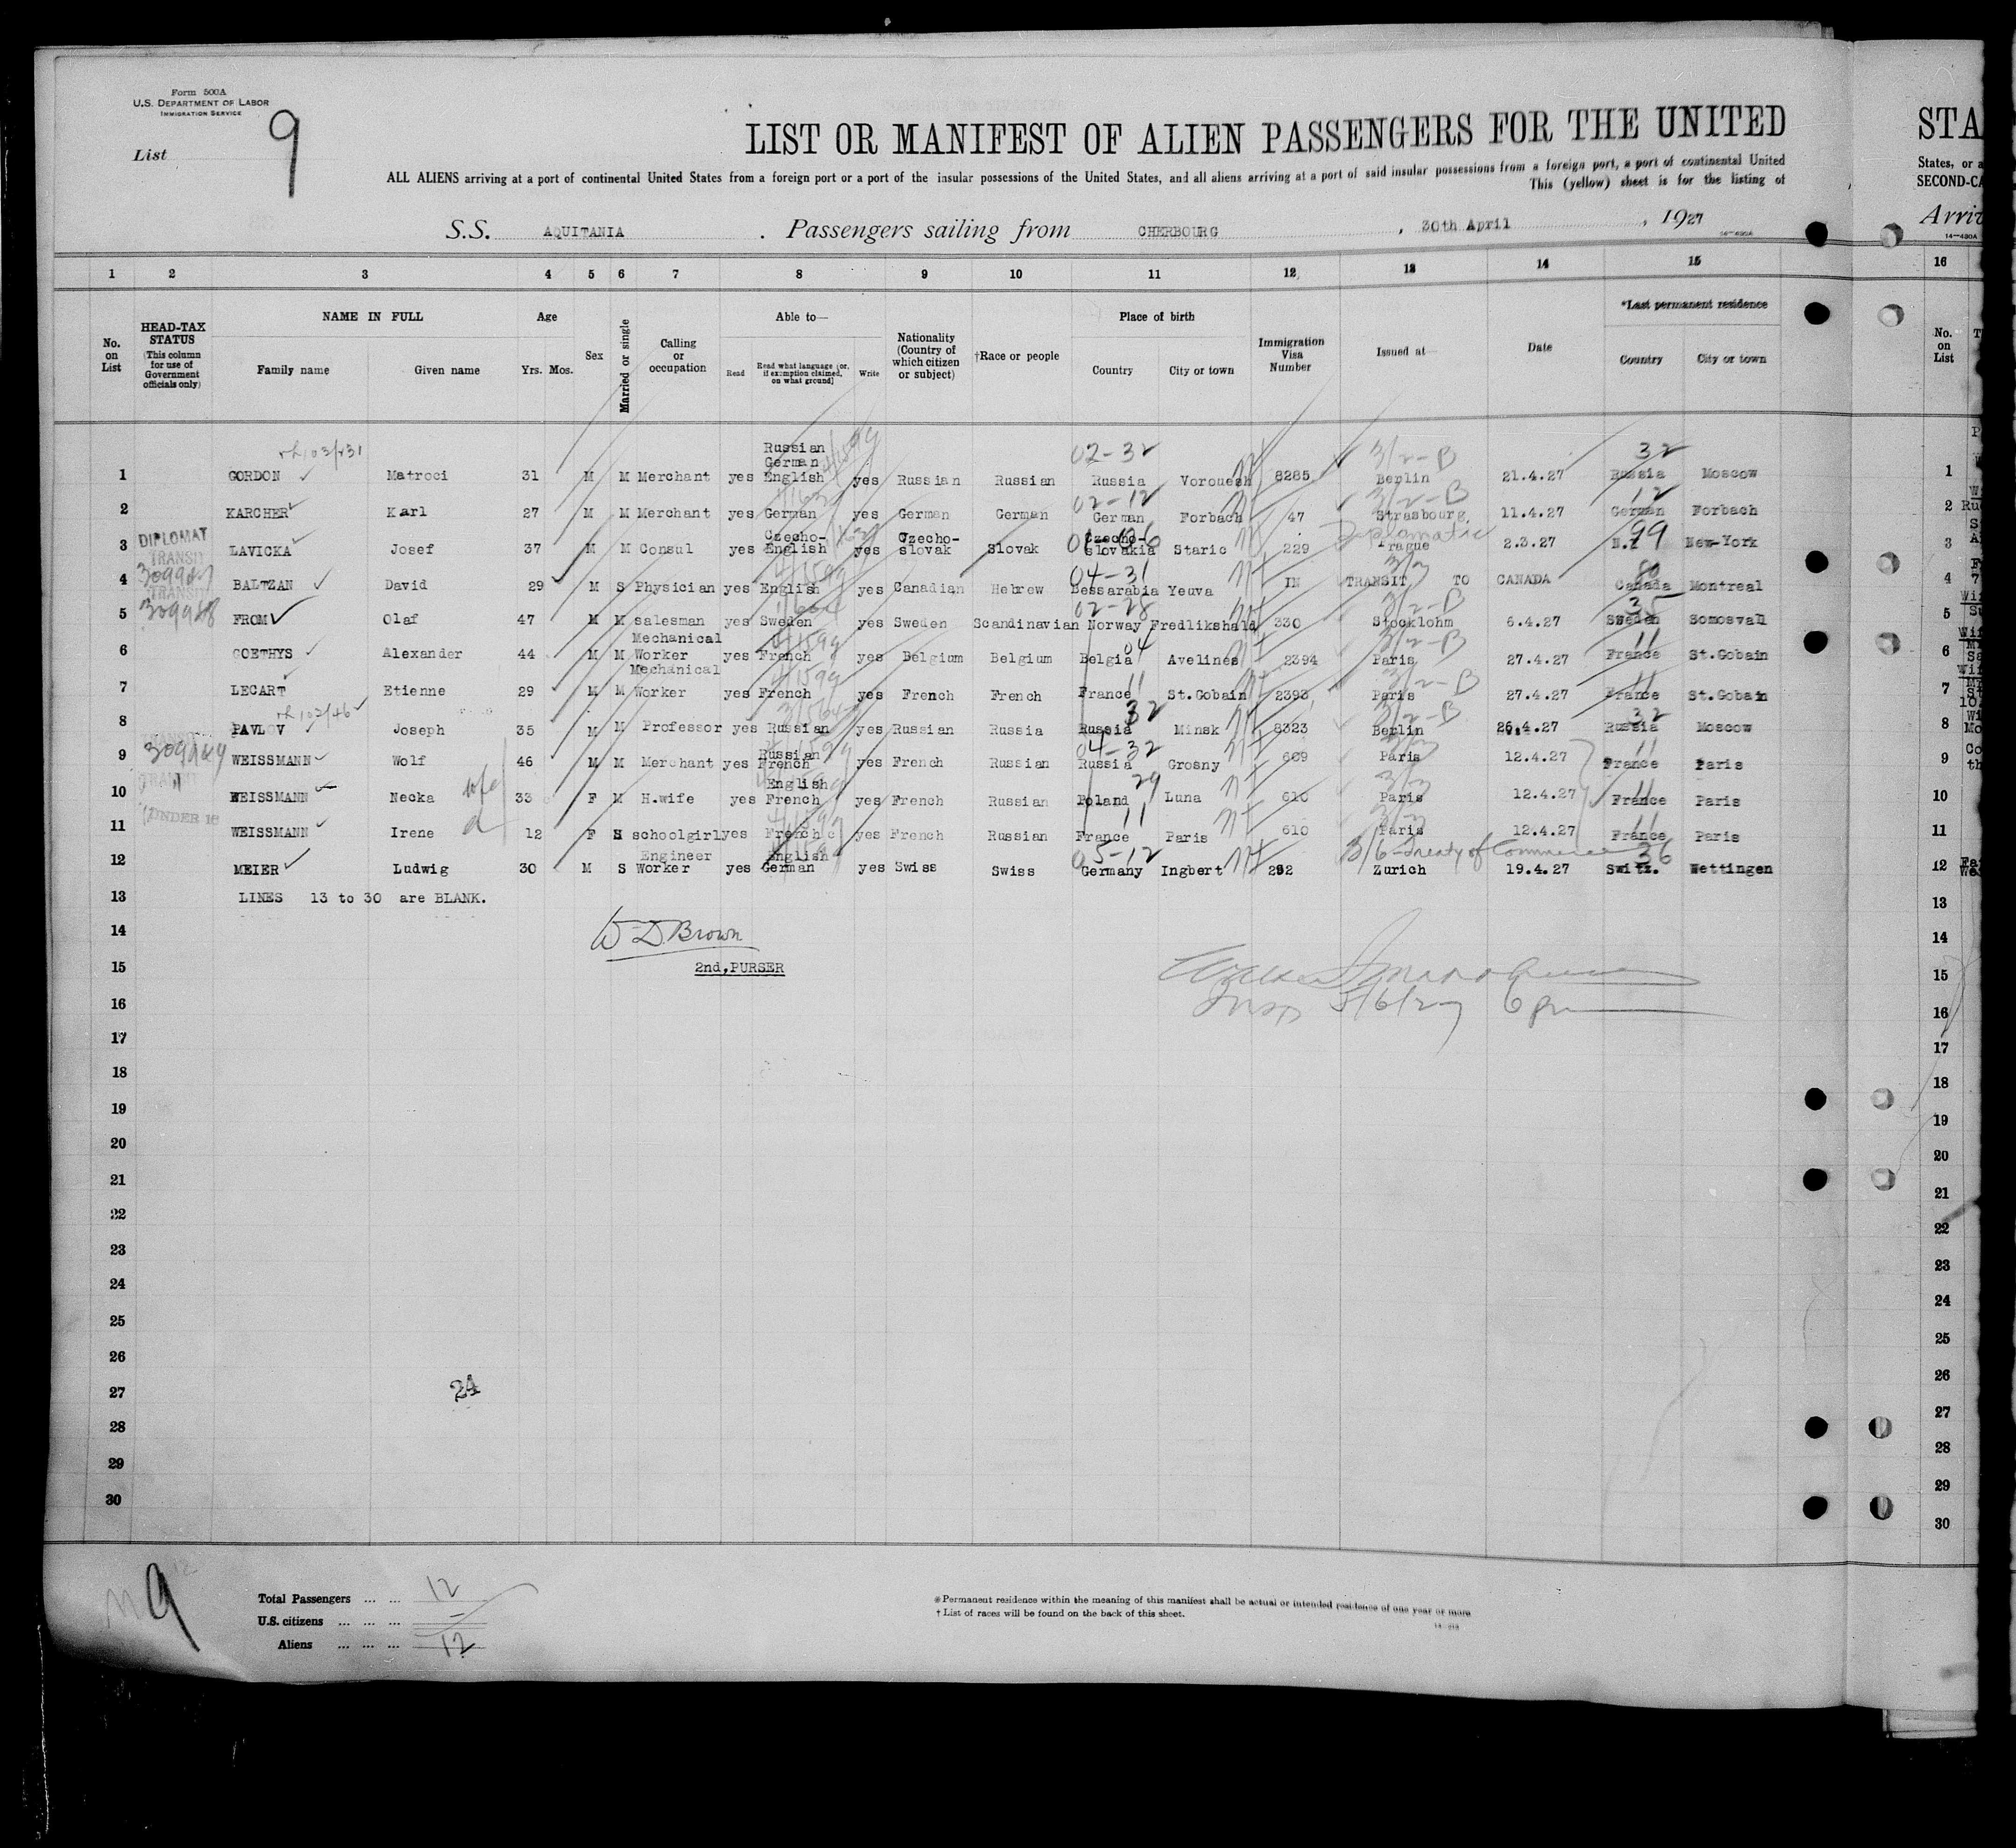 Form 500A
U.S. DEPARTMENT OF LABOR
IMMIGRATION SERVICE
List 9
LIST OR MANIFEST OF ALIEN PASSENGERS FOR THE UNITED
STA
ALL ALIENS arriving at a port of continental United States from a foreign port or a port of the insular possessions of the United States, and all aliens arriving at a port of said insular possessions from a foreign port, a port of continental United
States, or a
This (yellow) sheet is for the listing of
SECOND-CA
S.S. AQUITANIA . Passengers sailing from CHERBOURG , 30th April , 1927
Arriv
14-430A
1 2 3 4 5 6 7 8 9 10 11 12 13 14 15 16
No. on List
HEAD-TAX STATUS (This column for use of Government officials only)
NAME IN FULL
Family name Given name
Age
Yrs. Mos.
Sex
Married or single
Calling or occupation
Able to—
Read Read what language [or, if exemption claimed, on what ground] Write
Nationality (Country of which citizen or subject)
†Race or people
Place of birth
Country City or town
Immigration Visa Number
Issued at—
Date
*Last permanent residence
Country City or town
No. on List
1 GORDON Matroci 31 M M Merchant yes Russian German English yes Russian Russian 02-32 Russia Vorouesh 8285 3/2-B Berlin 21.4.27 32 Russia Moscow 1
2 KARCHER Karl 27 M M Merchant yes German yes German German 02-12 German Forbach 47 3/2-B Strasbourg. 11.4.27 12 German Forbach 2
3 DIPLOMAT LAVICKA Josef 37 M M Consul yes Czecho- English yes Czecho-slovak Slovak Czecho-slovakia Staric 229 Diplomatic Prague 2.3.27 99 N.Y New-York 3
4 TRANSIT BALTZAN David 29 M S Physician yes English yes Canadian Hebrew 04-31 Bessarabia Yeuva IN TRANSIT TO CANADA 80 Canada Montreal 4
5 TRANSIT FROM Olaf 47 M M salesman yes Sweden yes Sweden Scandinavian 02-28 Norway Fredlikshald 330 3/2-B Stocklohm 6.4.27 35 Sweden Somosvall 5
6 GOETHYS Alexander 44 M M Mechanical Worker yes French yes Belgium Belgium 04 Belgia Avelines 2394 3/2-B Paris 27.4.27 11 France St.Gobain 6
7 LECART Etienne 29 M M Mechanical Worker yes French yes French French 11 France St.Gobain 2393 3/2-B Paris 27.4.27 11 France St.Gobain 7
8 PAVLOV Joseph 35 M M Professor yes Russian yes Russian Russia 32 Russia Minsk 8323 3/2-B Berlin 26.4.27 32 Russia Moscow 8
9 TRANSIT WEISSMANN Wolf 46 M M Merchant yes Russian French yes French Russian 04-32 Russia Grosny 609 Paris 12.4.27 11 France Paris 9
10 TRANSIT WEISSMANN Necka wife 33 F M H.wife yes English French yes French Russian 29 Poland Luna 610 Paris 12.4.27 11 France Paris 10
11 UNDER 16 WEISSMANN Irene d 12 F S schoolgirl yes French yes French Russian 11 France Paris 610 Paris 12.4.27 11 France Paris 11
12 MEIER Ludwig 30 M S Engineer Worker yes English German yes Swiss Swiss 05-12 Germany Ingbert 292 3/6-Treaty of Commerce Zurich 19.4.27 36 Switz. Wettingen 12
13 LINES 13 to 30 are BLANK. 13
14 W D Brown 14
15 2nd, PURSER 15
16 Insp 5/6/27 6 pm 16
17 17
18 18
19 19
20 20
21 21
22 22
23 23
24 24
25 25
26 26
27 24 27
28 28
29 29
30 30
9
Total Passengers ... ... 12
U.S. citizens ... ... ... –
Aliens ... ... ... 12
* Permanent residence within the meaning of this manifest shall be actual or intended residence of one year or more
† List of races will be found on the back of this sheet.